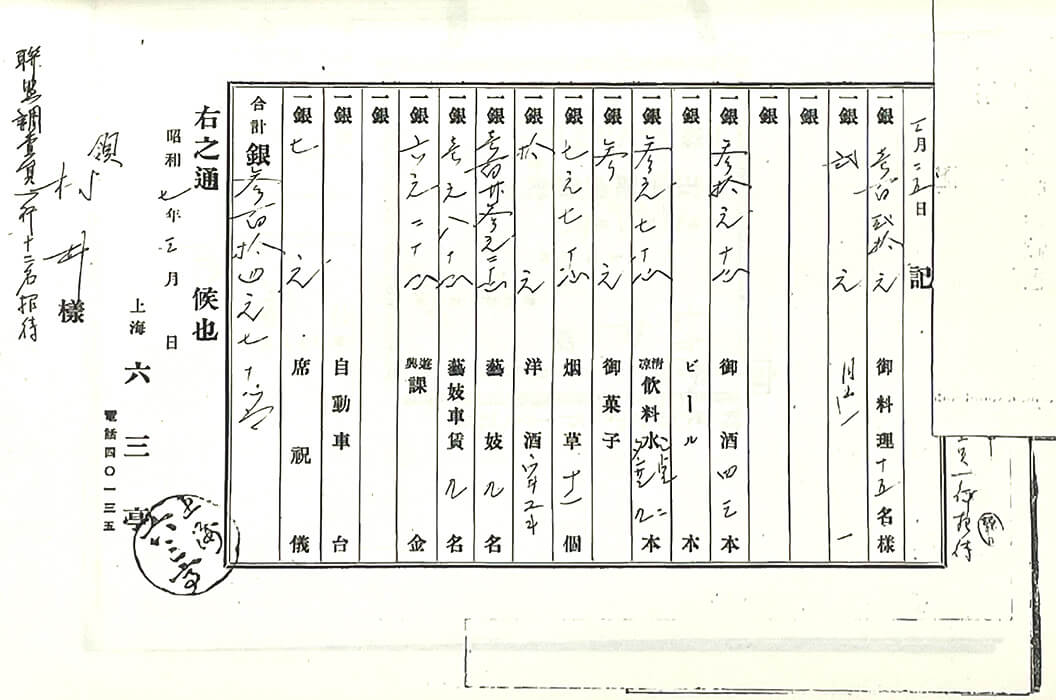 記
三月二五日
一銀 壱百弐拾元 御料理十五名様
一銀 弐元 一
一銀
一銀
一銀 参拾元十仙 御酒四三本
一銀 ビール本
一銀 参元七十仙 清涼飲料水 九本
一銀 参元 御菓子
一銀 七元七十仙 烟草十一個
一銀 拾元 洋酒
一銀 壱百廿参元二十仙 藝妓九名
一銀 壱元八十仙 藝妓車賃九名
一銀 六元二十仙 遊興課金
一銀
一銀 自動車台
一銀 七元 席祝儀
合計銀参百拾四元七十仙
右之通候也
昭和七年三月 日
上海 六三亭
電話四〇一三五
領
村井様
聯盟調査員一行十二名招待
上海
六三亭
員一行招待